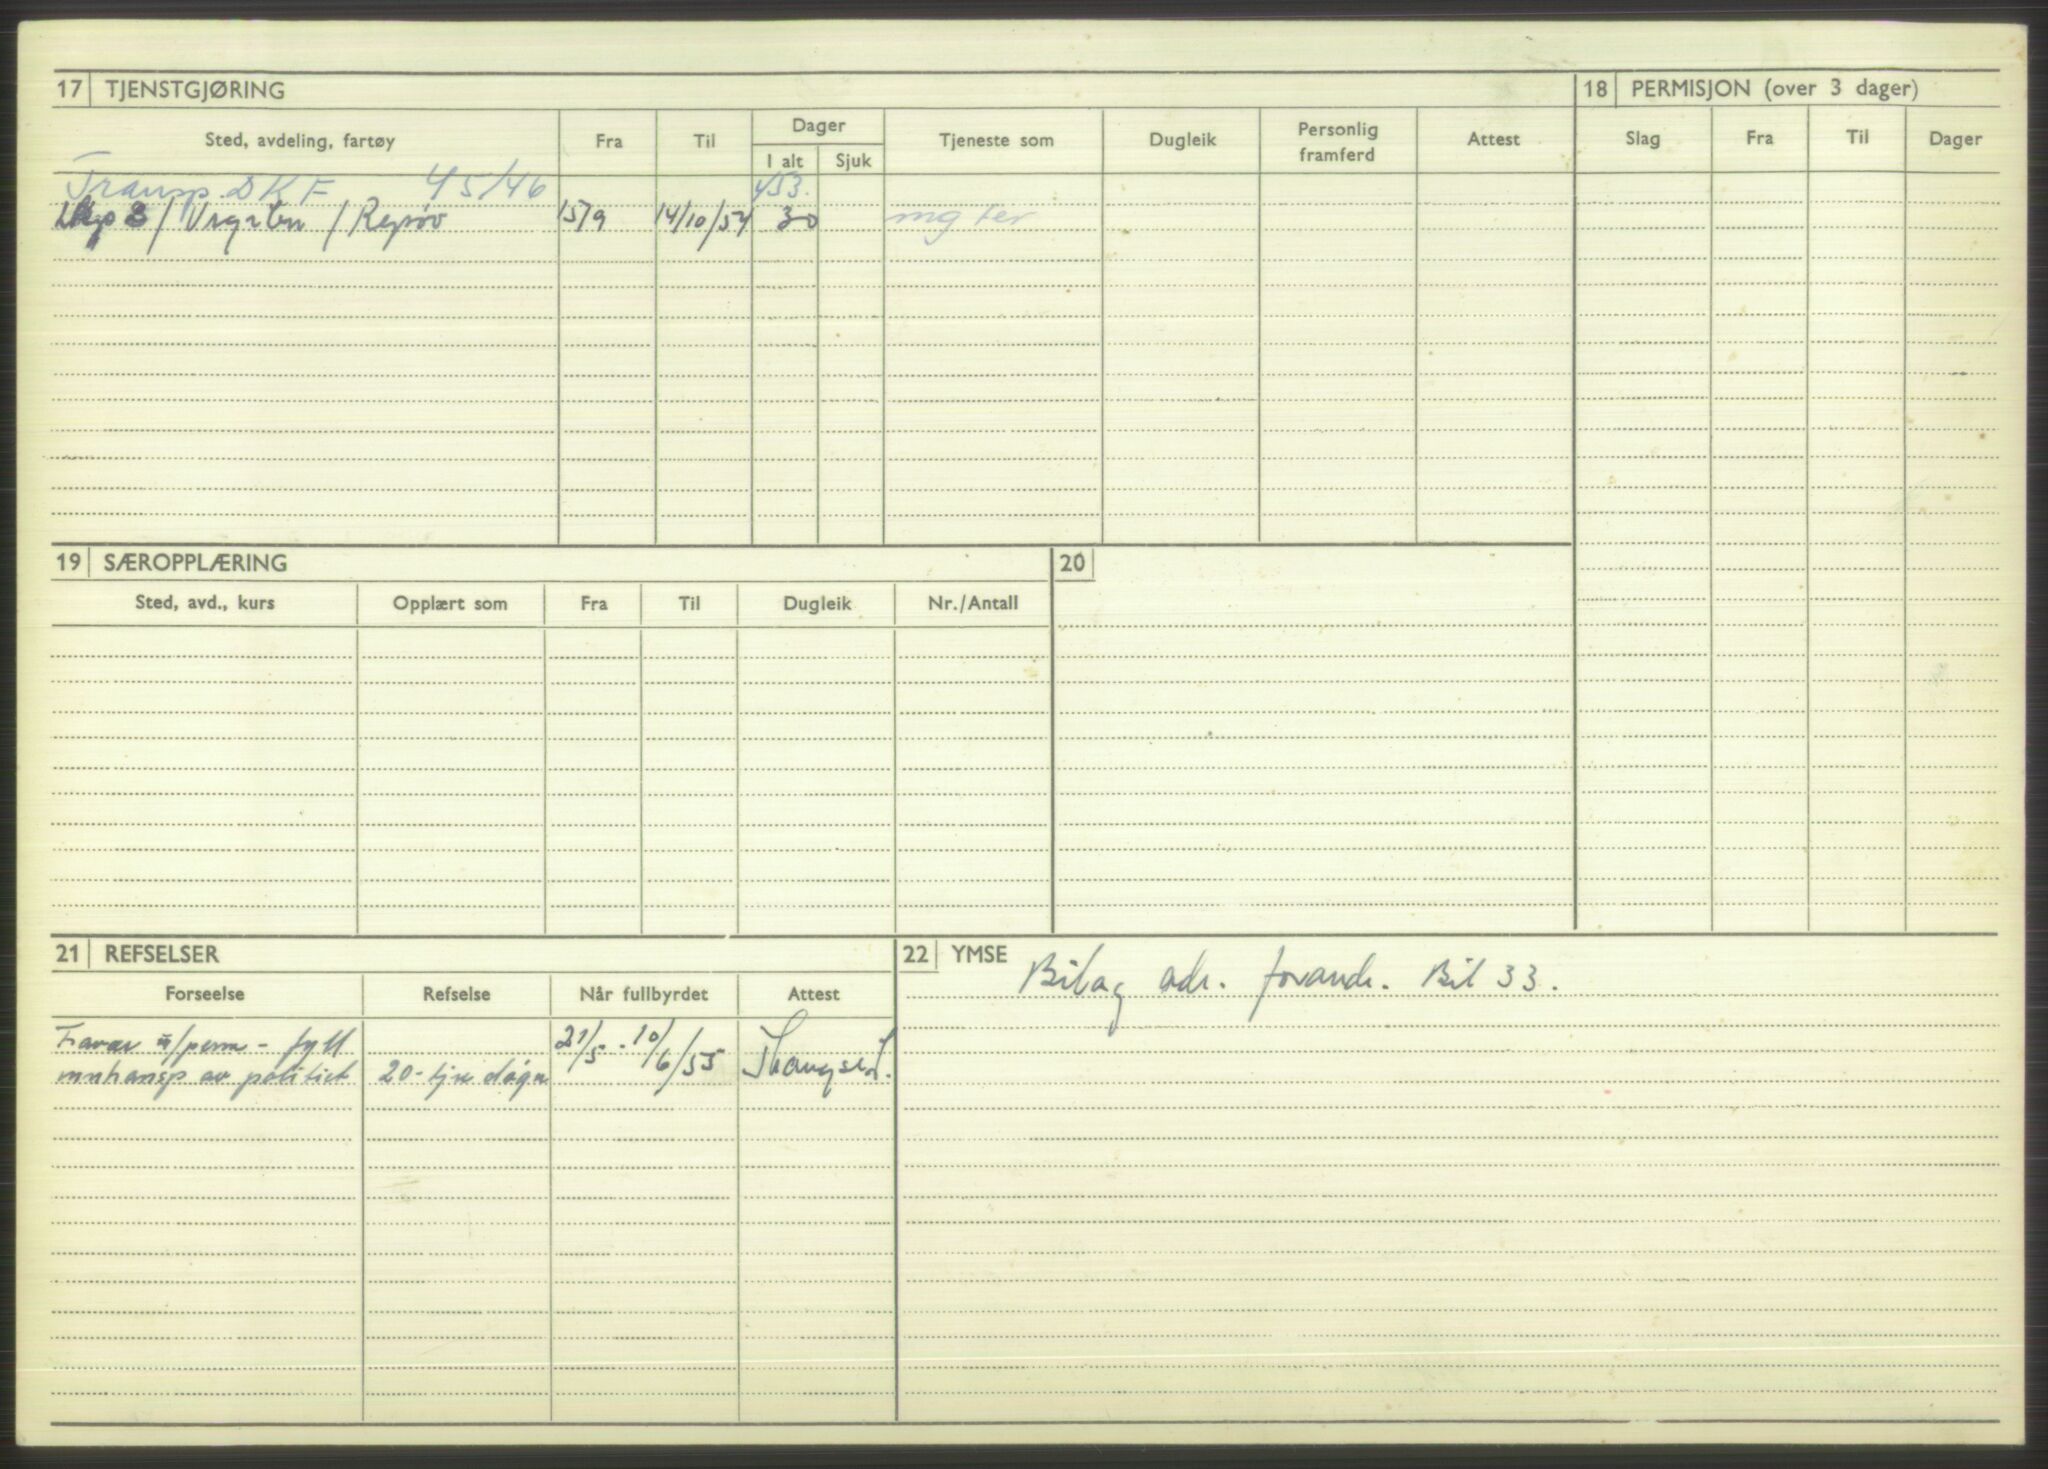 17 TJENSTGJØRING
18 PERMISJON (over 3 dager)
Sted, avdeling, fartøy Fra Til Dager I alt Sjuk Tjeneste som Dugleik Personlig framferd Attest Slag Fra Til Dager
Transp. DKF 45/46 453.
3/ /Repøv 15/9 14/10/54 30 mg ter
19 SÆROPPLÆRING
20
Sted, avd., kurs Opplært som Fra Til Dugleik Nr./Antall
21 REFSELSER
22 YMSE Bilag adr. forandr. Bil 33.
Forseelse Refselse Når fullbyrdet Attest
Fravær u/perm - fyll 21/5-10/6/55
av politiet 20-tjue døgn